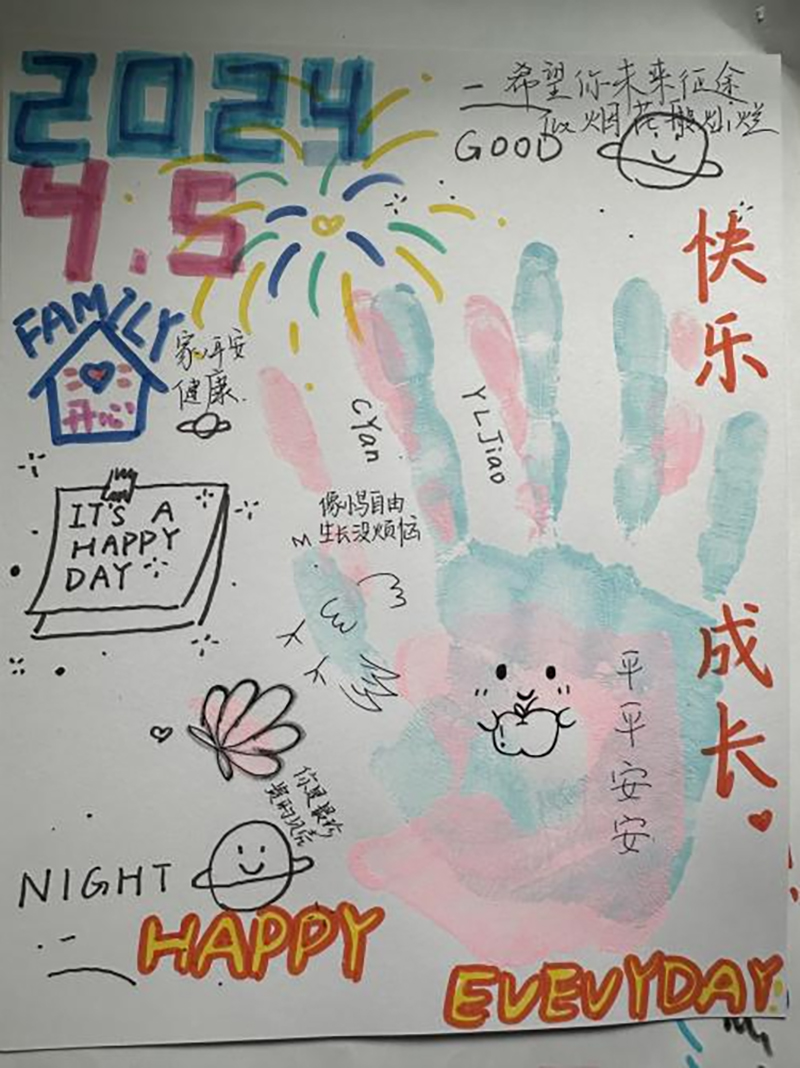 2024
4.5
希望你未来征途
似烟花般灿烂
GOOD
快乐
成长
FAMILY
开心
家人平安
健康
CYan
YLJiao
像鸟自由
生长没烦恼
IT'S A
HAPPY
DAY
平平安安
你是最珍
贵的风景
NIGHT
HAPPY
EVEVYDAY